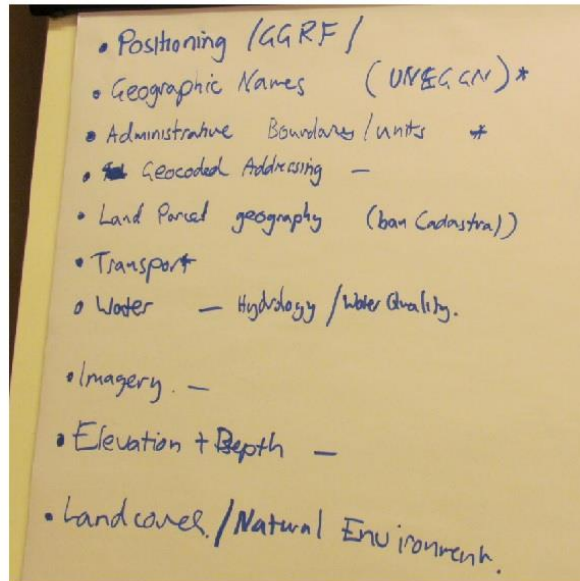 • Positioning /GGRF/
• Geographic Names (UNEGGN)*
• Administrative Boundaries/units *
• Geocoded Addressing —
• Land Parcel geography (ban Cadastral)
• Transport
• Water — Hydrology / Water Quality.
• Imagery. —
• Elevation + Depth —
• Landcover / Natural Environment.